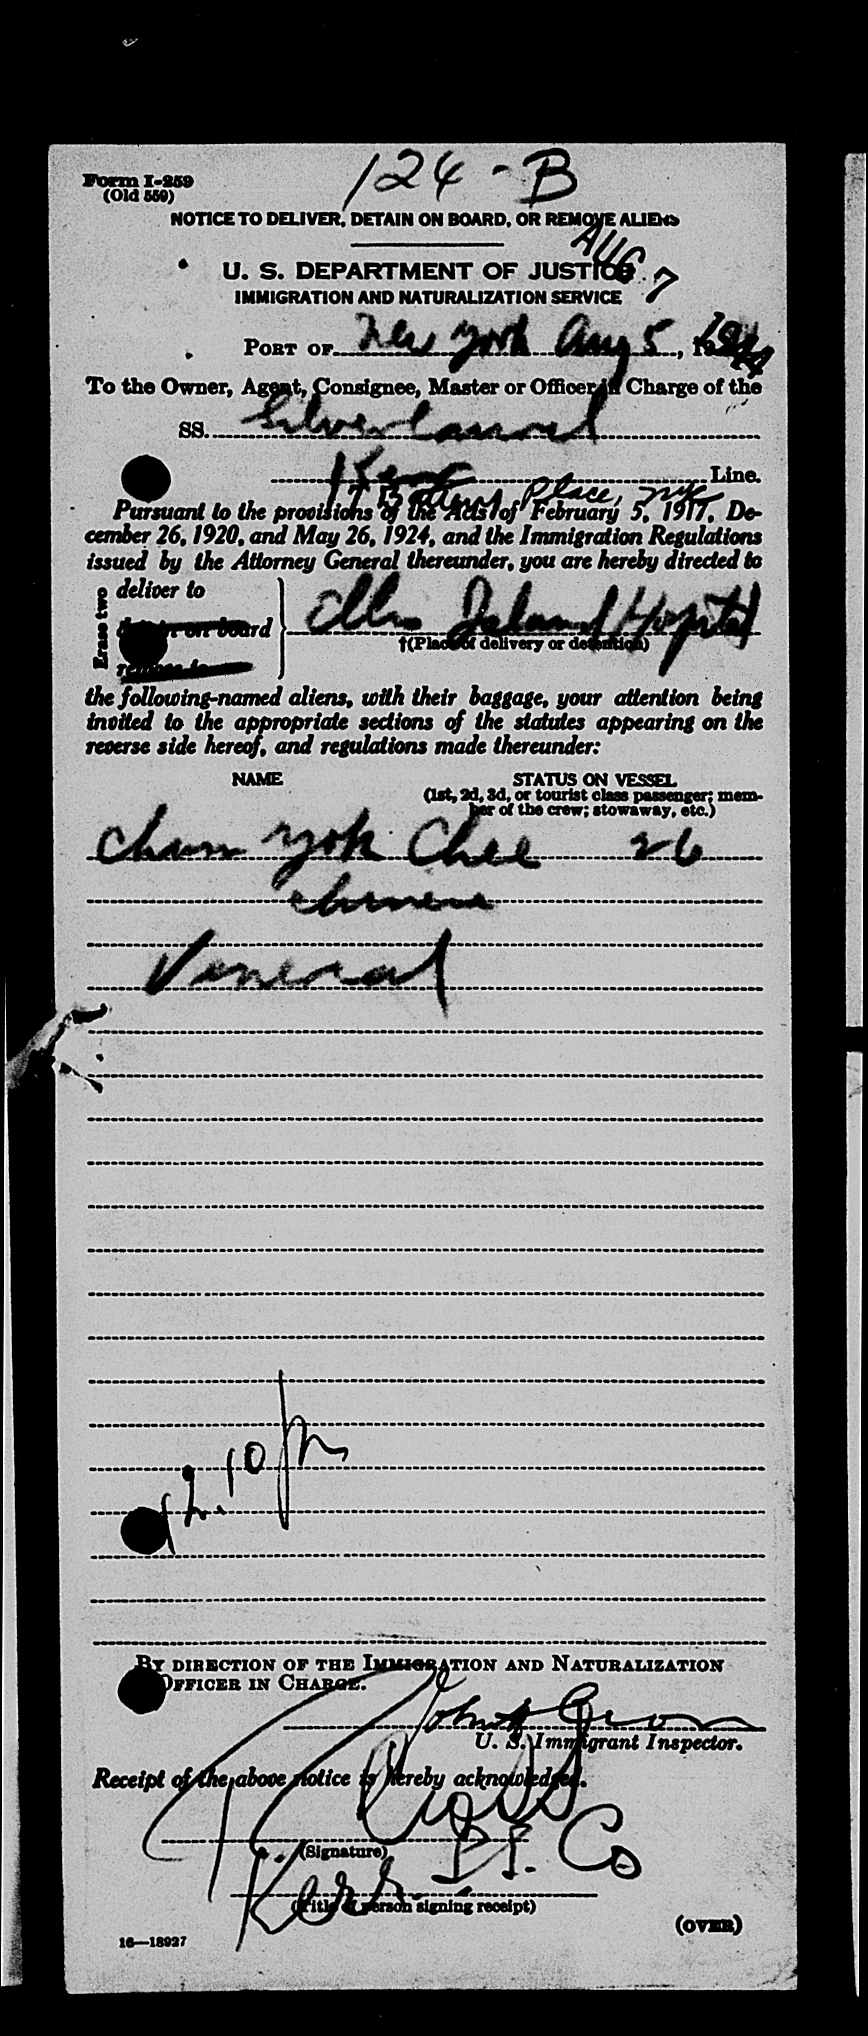 124-B
Form I-259
(Old 559)
NOTICE TO DELIVER, DETAIN ON BOARD, OR REMOVE ALIENS
AUG 7
U. S. DEPARTMENT OF JUSTICE
IMMIGRATION AND NATURALIZATION SERVICE
PORT OF New York Aug 5, 1944
To the Owner, Agent, Consignee, Master or Officer in Charge of the
SS. Silverlaurel
Kerr Line.
17 Battery Place, NYC
Pursuant to the provisions of the Acts of February 5, 1917, De-
cember 26, 1920, and May 26, 1924, and the Immigration Regulations
issued by the Attorney General thereunder, you are hereby directed to
Erase two
deliver to
detain on board
remove to
Ellis Island Hospital
†(Place of delivery or detention)
the following-named aliens, with their baggage, your attention being
invited to the appropriate sections of the statutes appearing on the
reverse side hereof, and regulations made thereunder:
NAME STATUS ON VESSEL
(1st, 2d, 3d, or tourist class passenger; mem-
ber of the crew; stowaway, etc.)
Chan Yok Chee 26
Chinese
Venereal
12.10 pm
BY DIRECTION OF THE IMMIGRATION AND NATURALIZATION
OFFICER IN CHARGE.
John
U. S. Immigrant Inspector.
Receipt of the above notice is hereby acknowledged.
(Signature)
Kerr S.S. Co
(Title of person signing receipt)
(OVER)
16—18927